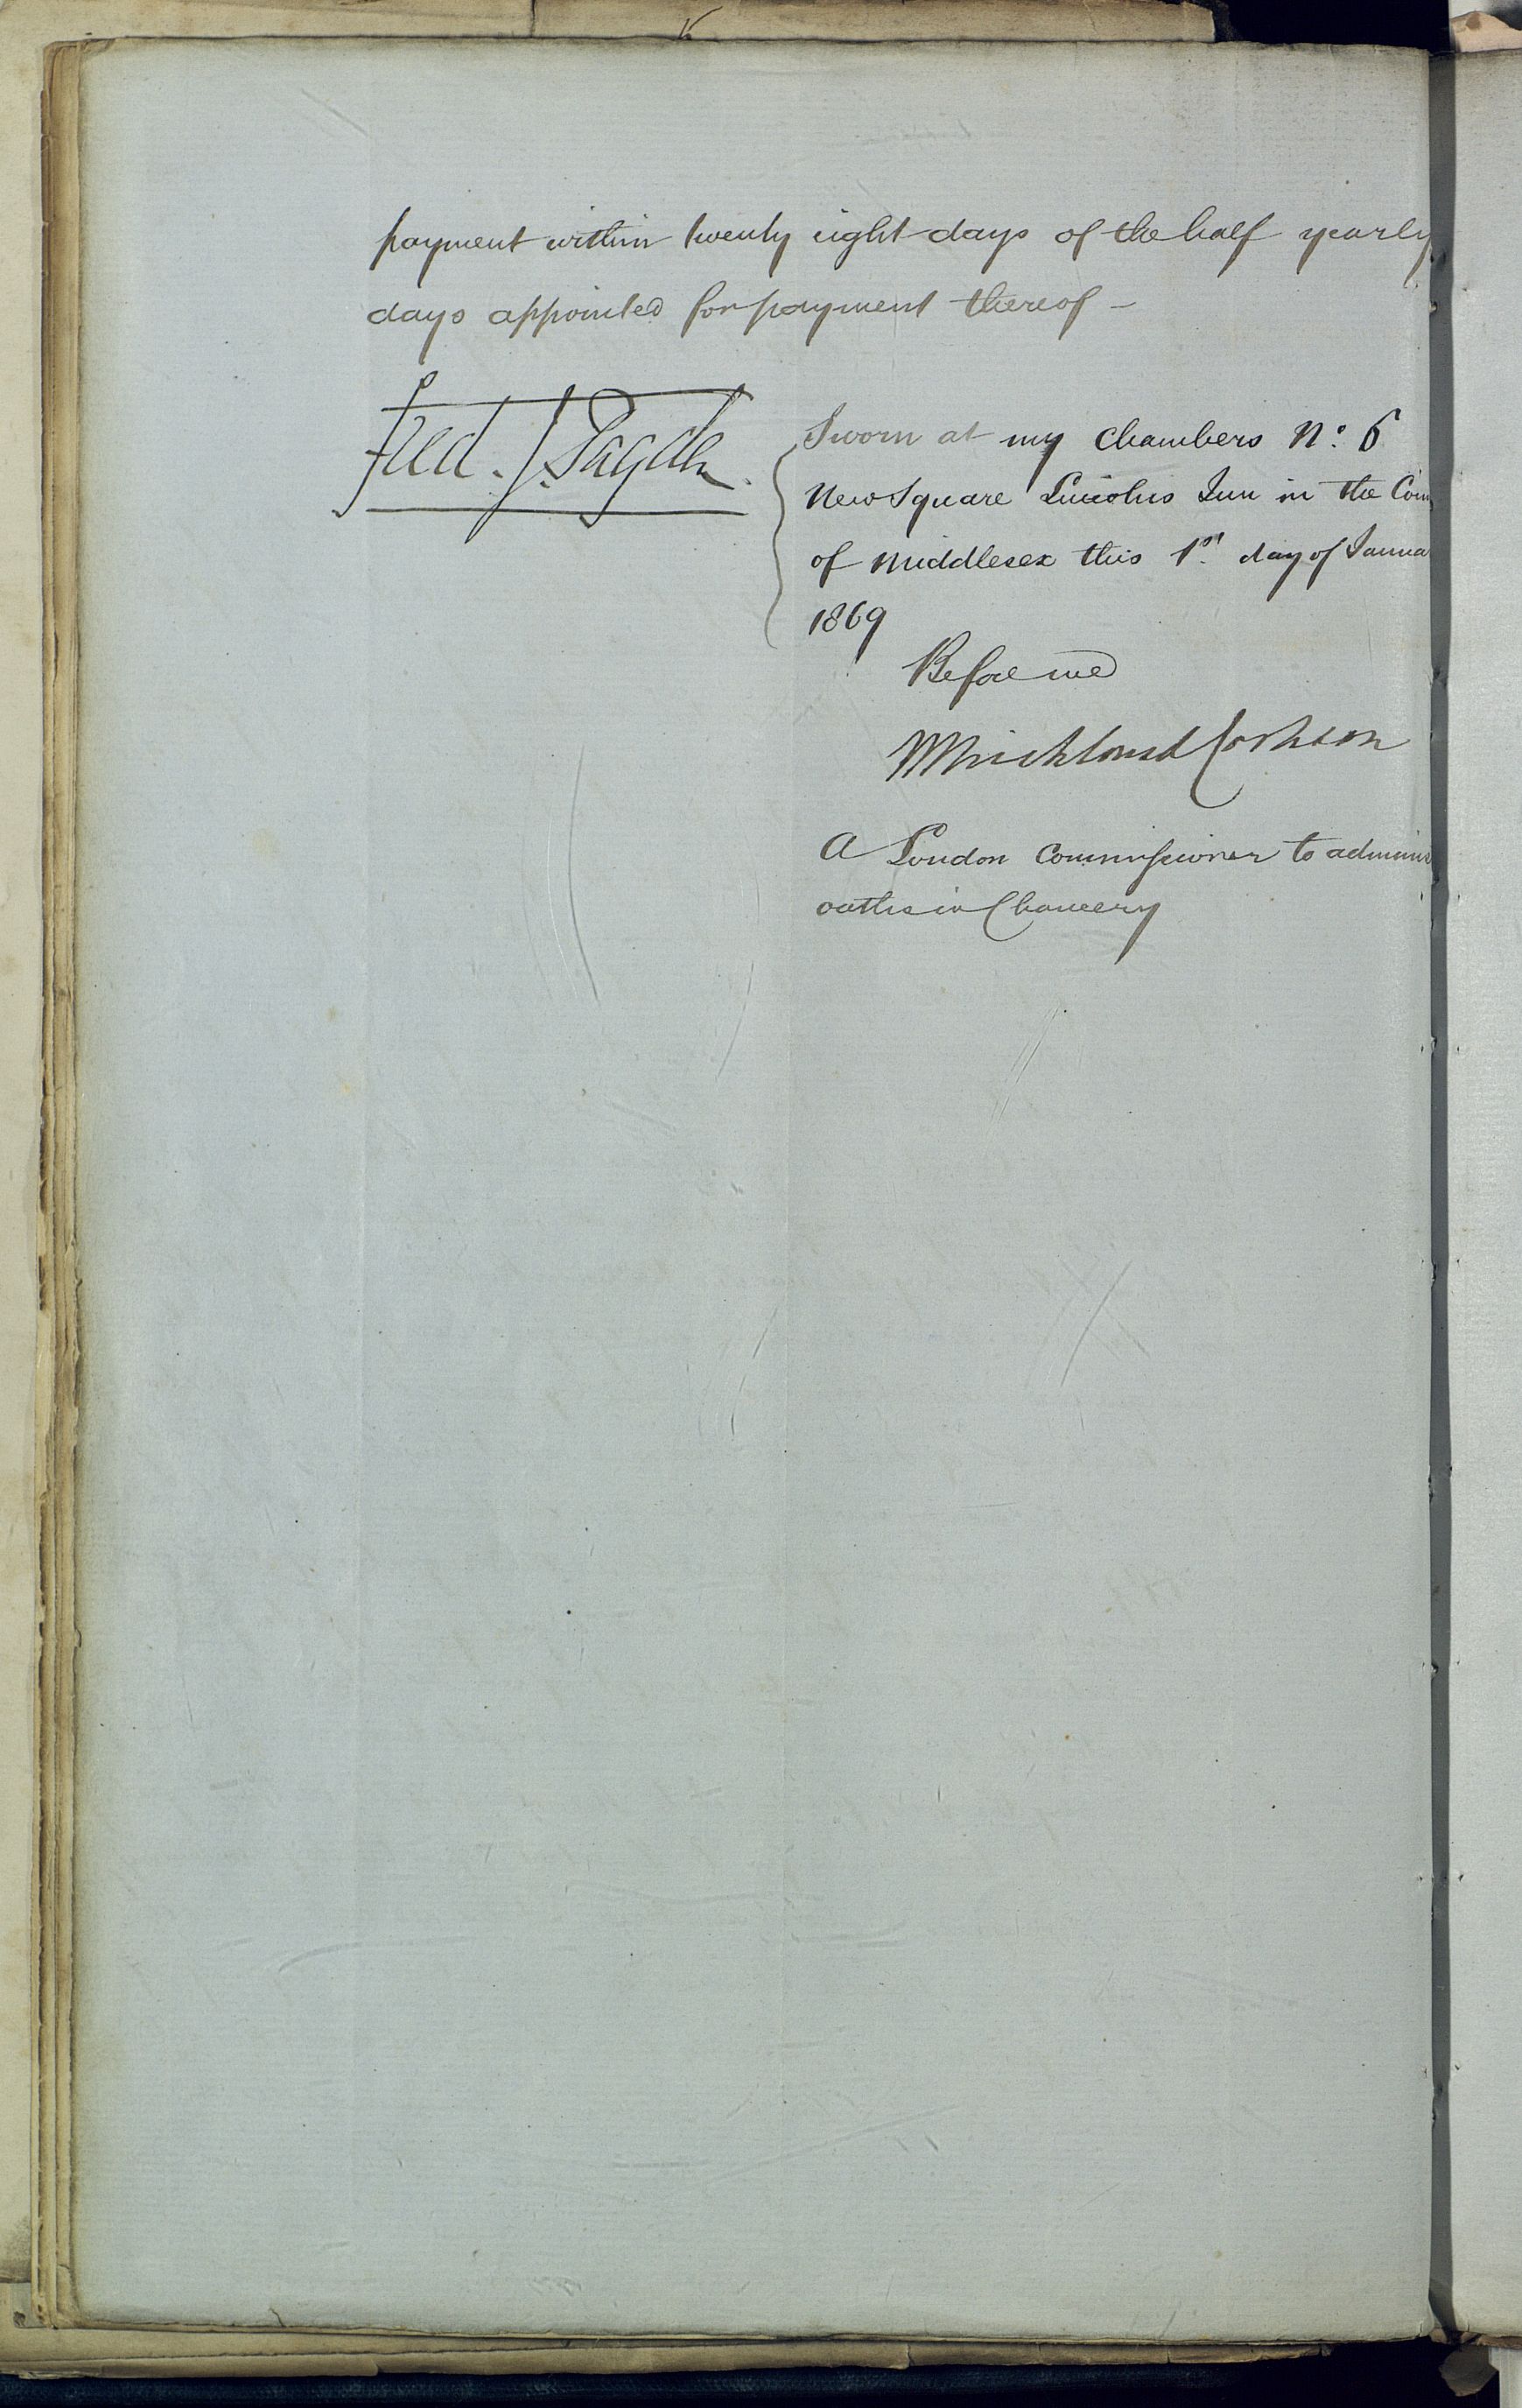 payment within twenty eight days of the half yearly
days appointed for payment thereof -
Fred. J.
Sworn at my Chambers No. 6
New Square Lincolns Inn in the Coun
of Middlesex this 1st. day of Janua
1869
Before me
A London Commissioner to adminis
oaths in Chancery